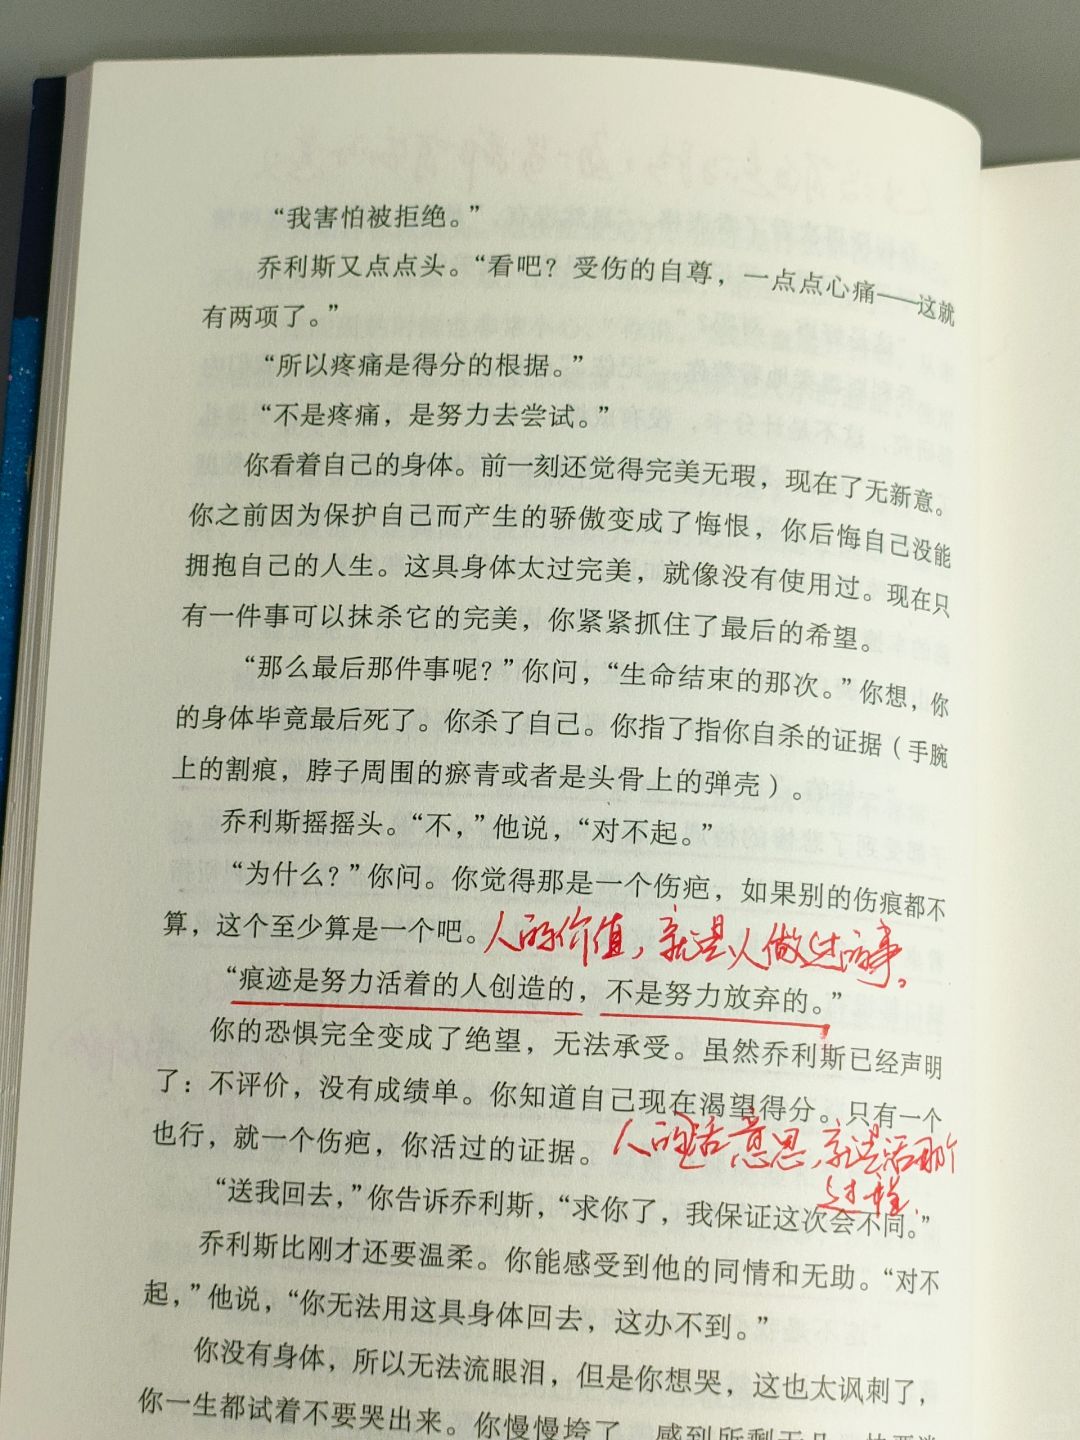 “我害怕被拒绝。”
乔利斯又点点头。“看吧？受伤的自尊，一点点心痛——这就
有两项了。”
“所以疼痛是得分的根据。”
“不是疼痛，是努力去尝试。”
你看着自己的身体。前一刻还觉得完美无瑕，现在了无新意。
你之前因为保护自己而产生的骄傲变成了悔恨，你后悔自己没能
拥抱自己的人生。这具身体太过完美，就像没有使用过。现在只
有一件事可以抹杀它的完美，你紧紧抓住了最后的希望。
“那么最后那件事呢？”你问，“生命结束的那次。”你想，你
的身体毕竟最后死了。你杀了自己。你指了指你自杀的证据（手腕
上的割痕，脖子周围的瘀青或者是头骨上的弹壳）。
乔利斯摇摇头。“不，”他说，“对不起。”
“为什么？”你问。你觉得那是一个伤疤，如果别的伤痕都不
算，这个至少算是一个吧。
人的价值，就是人做过的事。
“痕迹是努力活着的人创造的，不是努力放弃的。”
你的恐惧完全变成了绝望，无法承受。虽然乔利斯已经声明
了：不评价，没有成绩单。你知道自己现在渴望得分。只有一个
也行，就一个伤疤，你活过的证据。
人的活意思，就是活那个
过程.
“送我回去，”你告诉乔利斯，“求你了，我保证这次会不同。”
乔利斯比刚才还要温柔。你能感受到他的同情和无助。“对不
起，”他说，“你无法用这具身体回去，这办不到。”
你没有身体，所以无法流眼泪，但是你想哭，这也太讽刺了，
你一生都试着不要哭出来。你慢慢垮了，感到所剩无几，